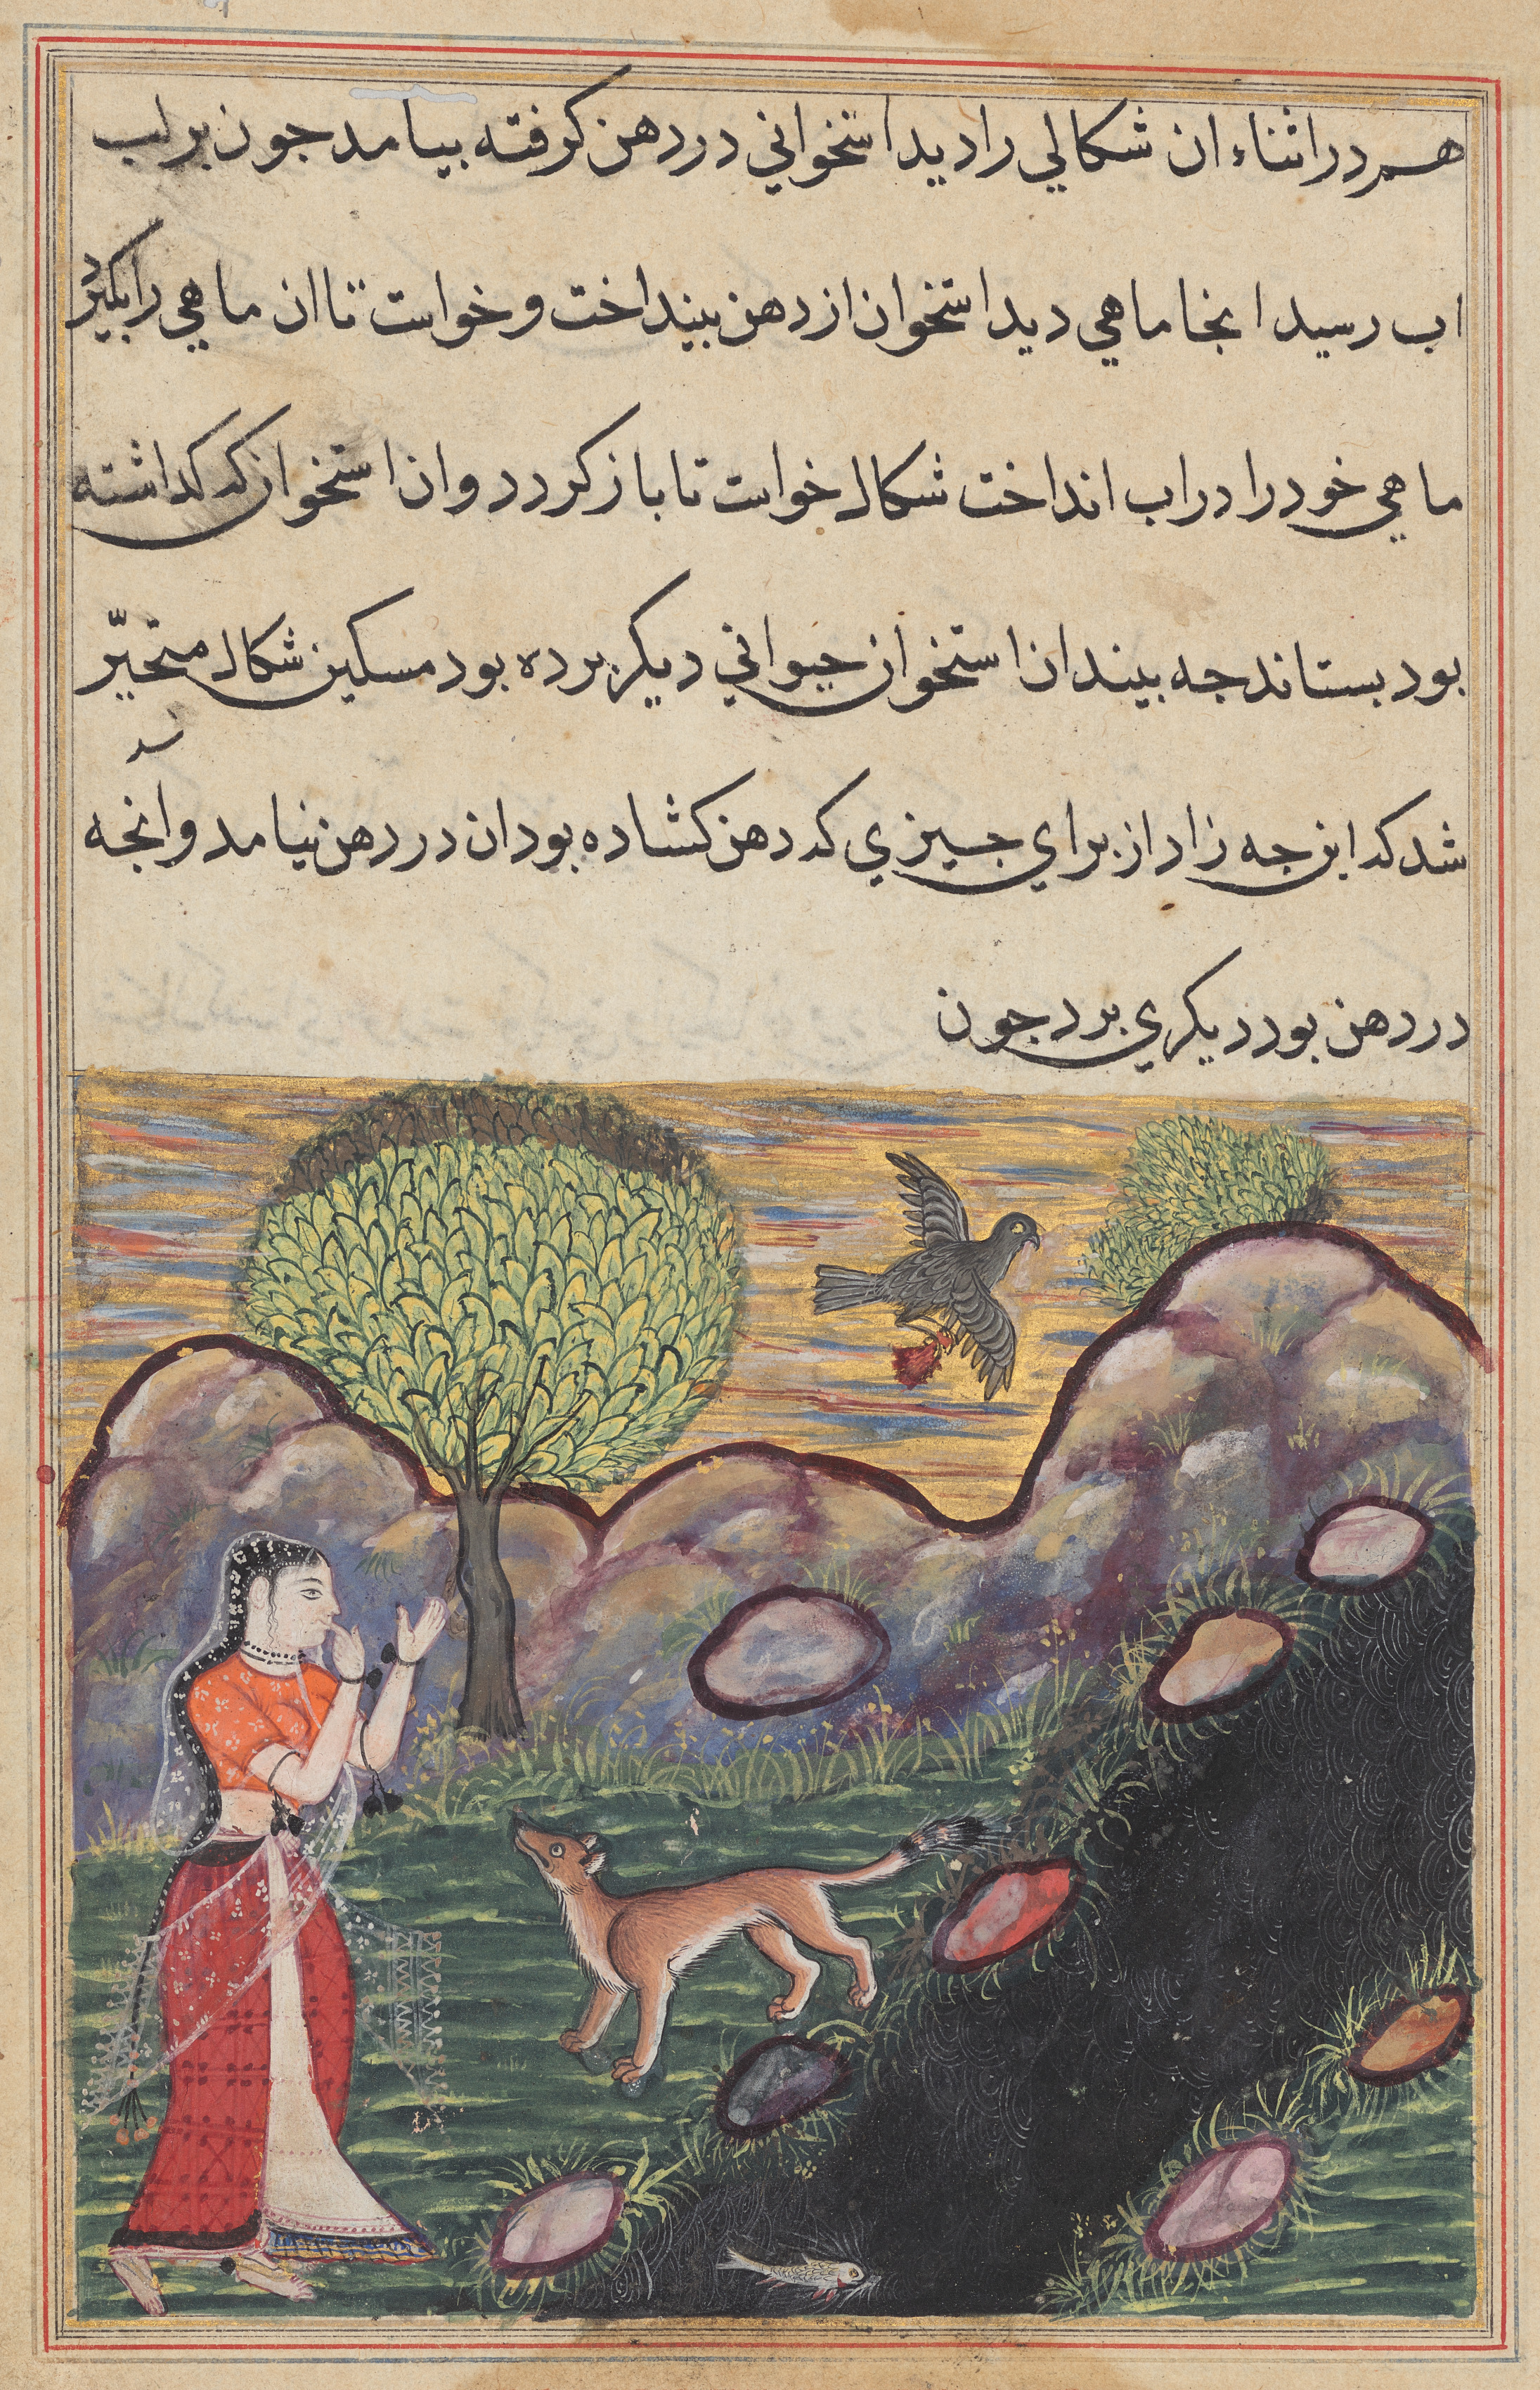 هم در اثناء ان شكالي را ديد استخواني در دهن كرفته بيامد جون بر لب
اب رسيد انجا ماهي ديد استخوان از دهن بينداخت و خواست تا ان ماهي را بكيرد
ماهي خود را در اب انداخت شكال خواست تا باز كردد و ان استخوان كه كداشته
بود بستاند جه بيند ان استخوان حيواني ديكر برده بود مسكين شكال متحيّر
شد
شد كه اين جه زاد از براي جيزي كه دهن كشاده بود ان در دهن نيامد و انجه
در دهن بود ديكري برد جون